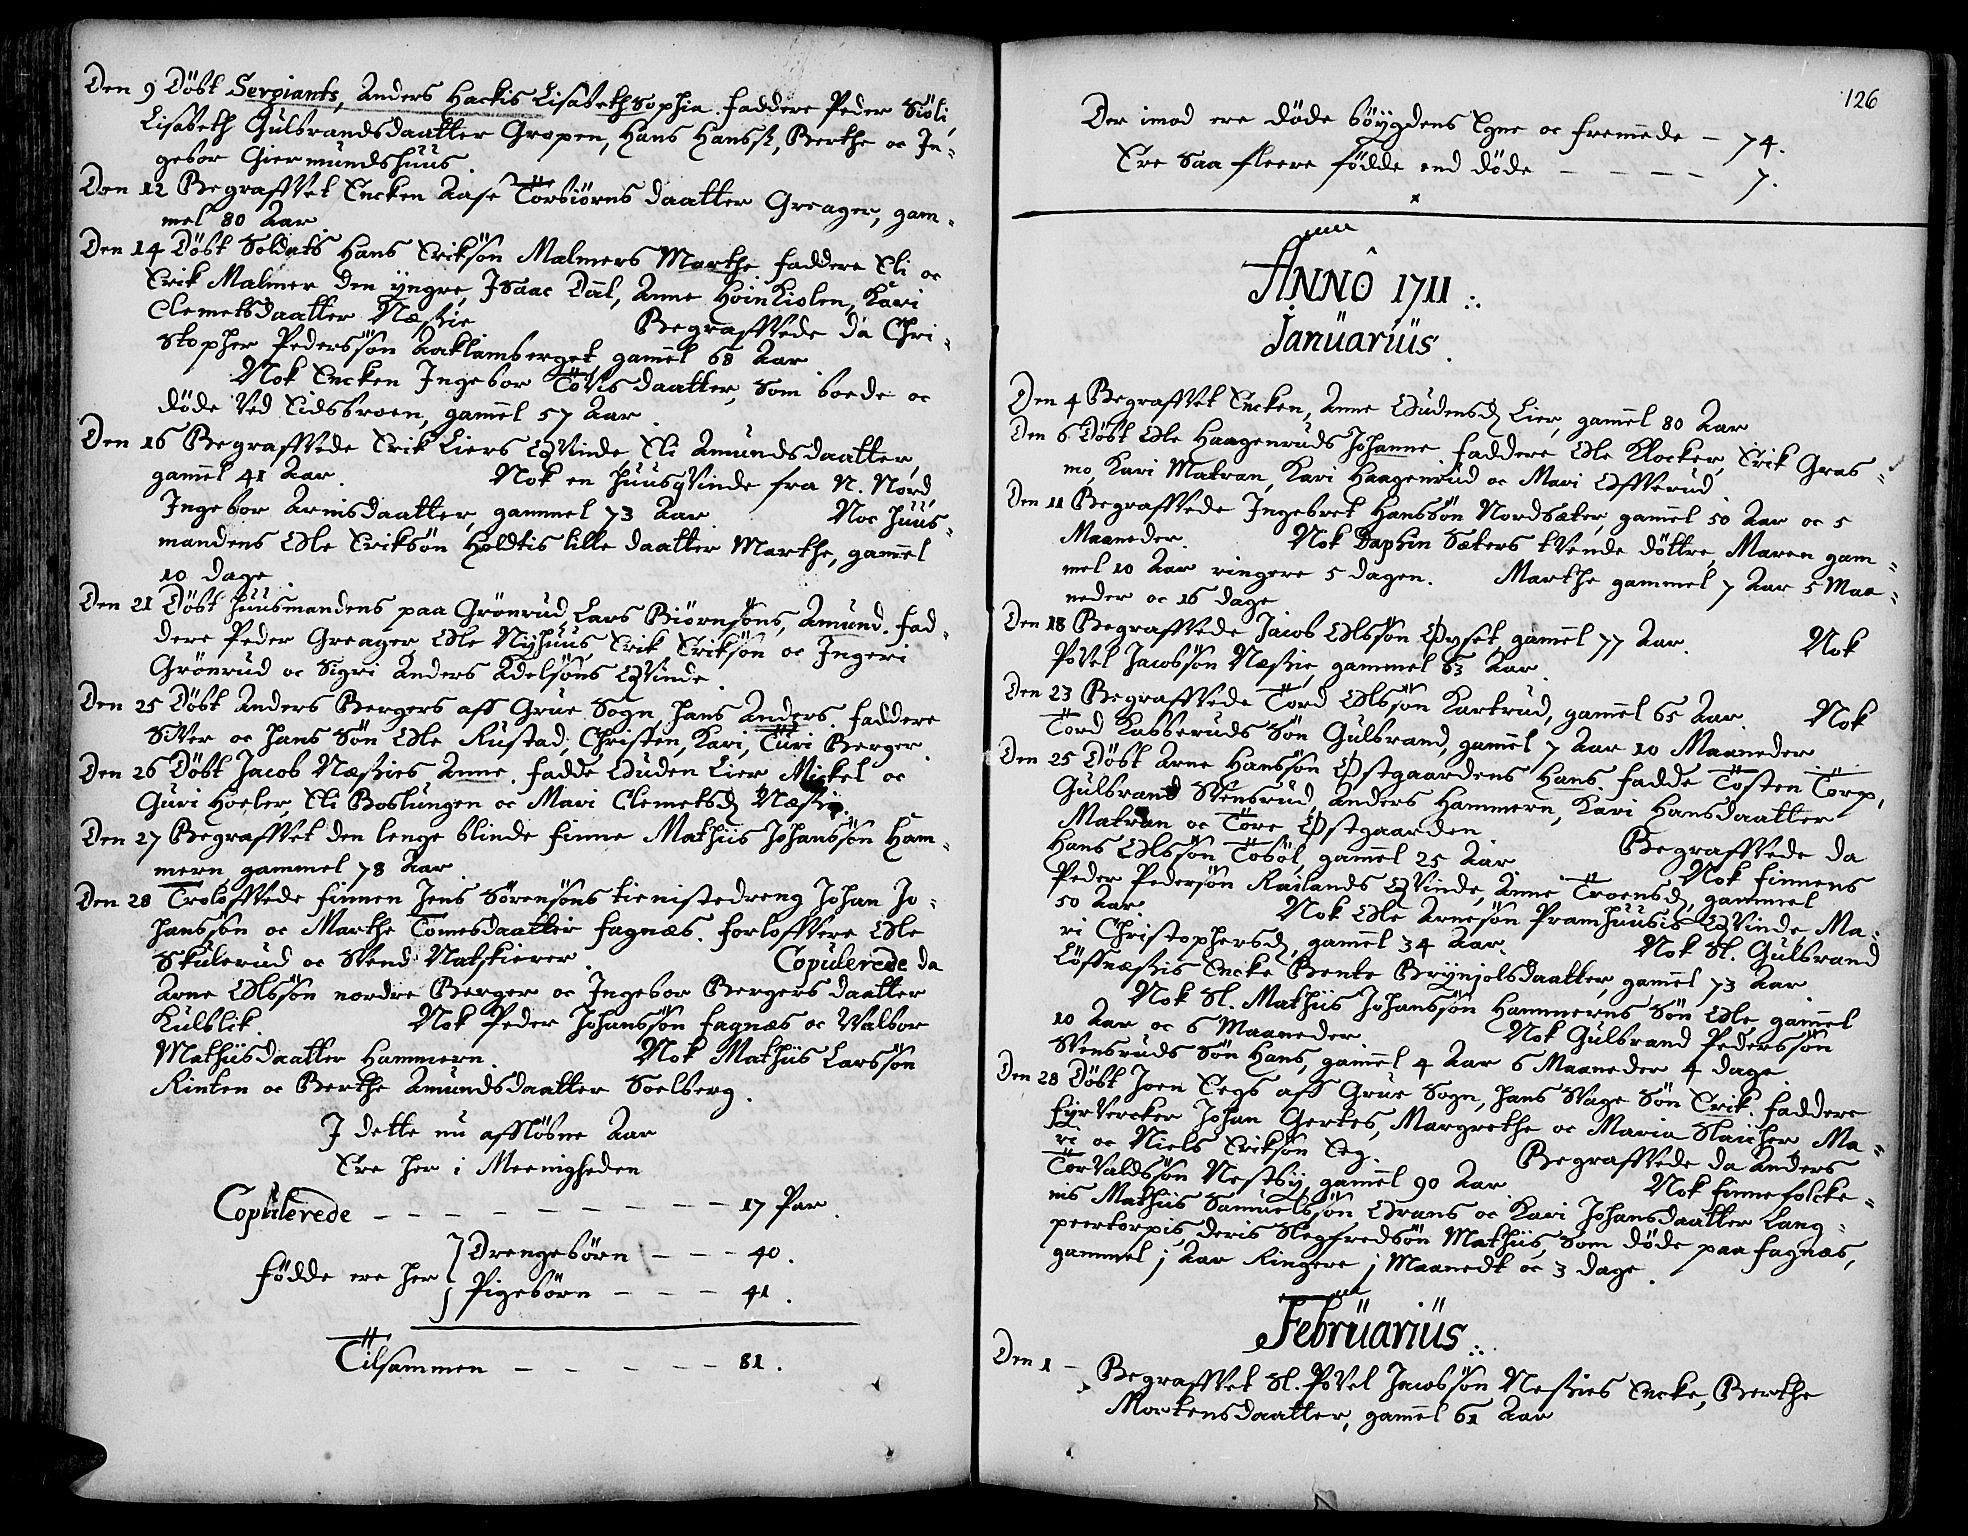 Den 9 Döbt Sergiants, Anders Hackis Lisabeth Sophia. faddere Peder Siöli,
Lisabeth Gulbrandsdaatter Gropen, Hans Hanss:, Berthe oc In-
gebor Giermundshüüs.
Den 12 Begraffvet Encken Aase Torbiörns daatter Greager, gam-
mel 80 Aar.
Den 14 Döbt Soldats Hans Eriksön Malmers Marthe. faddere Eli oc
Erik Malmer den yngre, Isaac Dal, Anne Hoinkiolen, Kari
Clemetsdaatter Næshie. Begraffvede da Chri-
stopher Pedersön Aaklamberget, gamel 68 Aar
Nok Encken Ingebor Tovis daatter, som boede oc
döde ved Eidsbroen, gamel 57 Aar.
Den 16 Begraffvede Erik Liers Qvinde Eli Amundsdaatter,
gamel 41 Aar. Nok en huusqvinde fra N. Nord,
Ingebor Arnisdaatter, gammel 73 Aar. Noc huus-
mandens Ole Eriksön Holdtis lille daatter Marthe, gamel
10 dage.
Den 21 Döbt huusmandens paa Grönrud, Lars Biörnsöns, Amund. fad-
dere Peder Greager, Ole Nyhuus, Erik Eriksön oc Ingeri
Grönrud oc Sigri Anders Adelsöns Qvinde.
Den 25 Döbt Anders Bergers aff Grue Sogn, hans Anders. faddere
Siver oc hans Sön Ole Rustad, Christen, Kari, Turi Berger.
Den 26 Döbt Jacob Næshies Anne. fadde Auden Lier, Mickel oc
Guri Hoeler, Eli Boslungen oc Mari Clemetsd.
Den 27 Begraffvet den lenge blinde finne Mathiis Johansön Ham-
mern, gammel 78 Aar.
Den 28 Troloffvede finnen Jens Sörensöns tienistedreng Johan Jo-
hansön oc Marthe Tomesdaatter fagnæs. forloffvere Ole
Skulerud oc Svend Natskierer. Copulerede da
Arne Olssön nordre Berger oc Ingebor Bergers daatter
Kulblik. Nok Peder Johansön fagnæs oc Valbor
Mathiisdaatter Hammern. Nok Mathiis Larssön
Rinten oc Berthe Amundsdaatter Soelberg.
I dette nu afflösne Aar
Ere her i Meenigheden
Copulerede - - - 17 Par.
födde ere her Drengebörn - - - 40.
Pigebörn - - - 41.
Tilsammen - - - 81.
126
Der imod ere döde böygdens Egne oc fremede - 74.
Ere saa fleere födde end döde - - - 7.
ANNO 1711
Januarius.
Den 4 Begraffvet Encken, Anne Audensd. Lier, gamel 80 Aar
Den 6 Döbt Ole Haagenruds Johanne. faddere Ole Klocker, Erik Gras-
mo, Kari Matran, Kari Haagenrud oc Mari Offverud
Den 11 Begraffvede Ingebret Hansön Nordsæter, gamel 50 Aar oc 5
Maaneder. Nok Daphin Sæters tvende döttre, Maren gam-
mel 10 Aar ringere 5 dagen. Marthe gammel 7 Aar 5 Maa-
neder oc 16 dage
Den 18 Begraffvede Jacob Olssön Øyset, gamel 77 Aar. Nok
Povel Jacobsön Næshie, gammel 63 Aar.
Den 23 Begraffvede Tord Olssön Kartrud, gamel 65 Aar. Nok
Tord Kabberuds Sön Gulbrand, gamel 7 Aar 10 Maaneder
Den 25 Döbt Arne Hansön Østgaardens Hans. fadde Tosten Torp,
Gulbrand Stensrud, Anders Hammern, Kari Hansdaatter
Matran oc Tore Østgaarden. Begraffvede da
Hans Olssön Toböl, gamel 25 Aar. Nok finnens
Peder Pedersön Raslands Qvinde, Anne Troensd, gammel
50 Aar. Nok Ole Arnesön Pramhuusis Qvinde Ma-
ri Christophersd, gamel 34 Aar. Nok Sl. Gulbrand
Löffnæshis Encke Bente Brynjolsdaatter, gamel 73 Aar.
Nok Sl. Mathiis Johansön Hammerns Sön Ole gamel
10 Aar oc 6 Maaneder. Nok Gulbrand Pedersön
Stensruds Sön Hans, gamel 4 Aar 6 Maaneder 4 dage.
Den 28 Döbt Joen Eegs aff Grue Sogn, hans svage Sön Erik. faddere
fyrvercker Johan Gertes, Margrethe oc Maria Slaicher, Ma-
ri oc Niels Eriksön Eeg. Begraffvede da Anders
Torvaldsön Nestby, gamel 90 Aar. Nok finnefolcke-
nis Mathiis Samuelsön Orans oc Kari Johansdaatter Lang-
peertorpis, deris Slegfredsön Mathiis, som döde paa fagnæs,
gammel j Aar Ringere j Maanedt oc 3 dage.
Februarius
Den 1 - Begraffvet Sl. Povel Jacobsön Neshies Encke, Berthe
Mortensdaatter, gamel 61 Aar